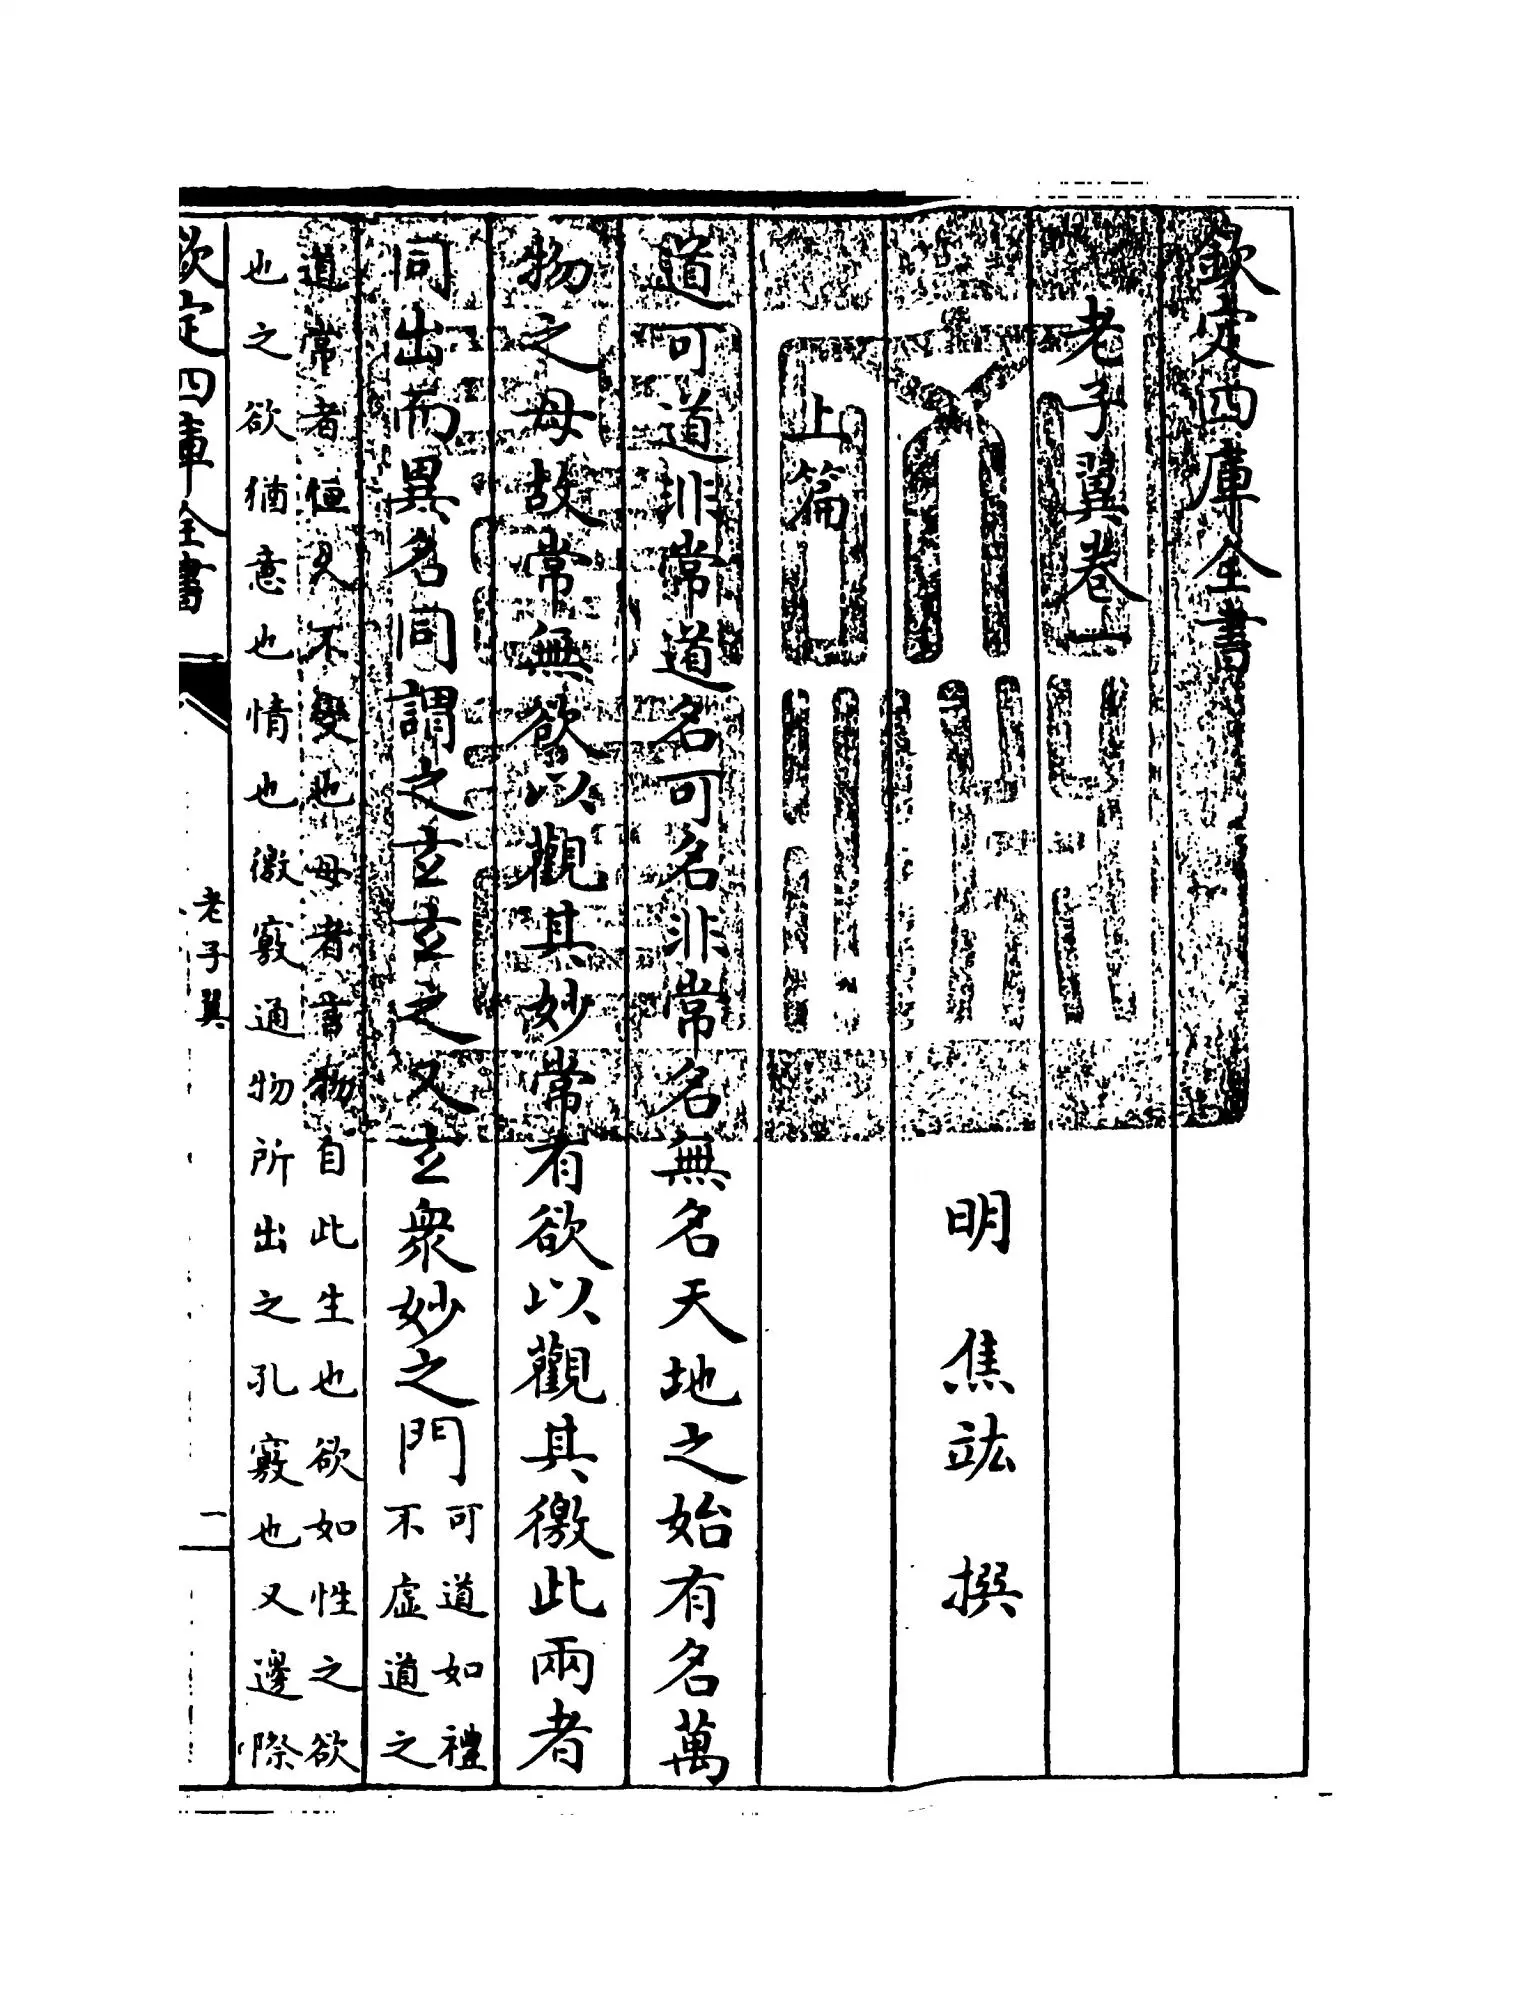 欽定四庫全書
老子翼卷一
明 焦竑 撰
上篇
道可道非常道名可名非常名無名天地之始有名萬
物之母故常無欲以觀其妙常有欲以觀其徼此兩者
同出而異名同謂之玄玄之又玄衆妙之門
可道如禮
不虛道之
道常者恒久不變也母者言物自此生也欲如性之欲
也之欲猶意也情也徼竅通物所出之孔竅也又邊際
欽定四庫全書
老子翼
一